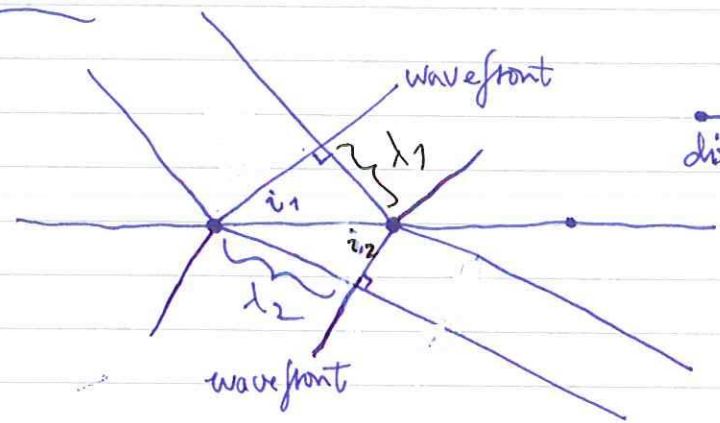 wavefront
λ1
di
i1
i2
λ2
wavefront